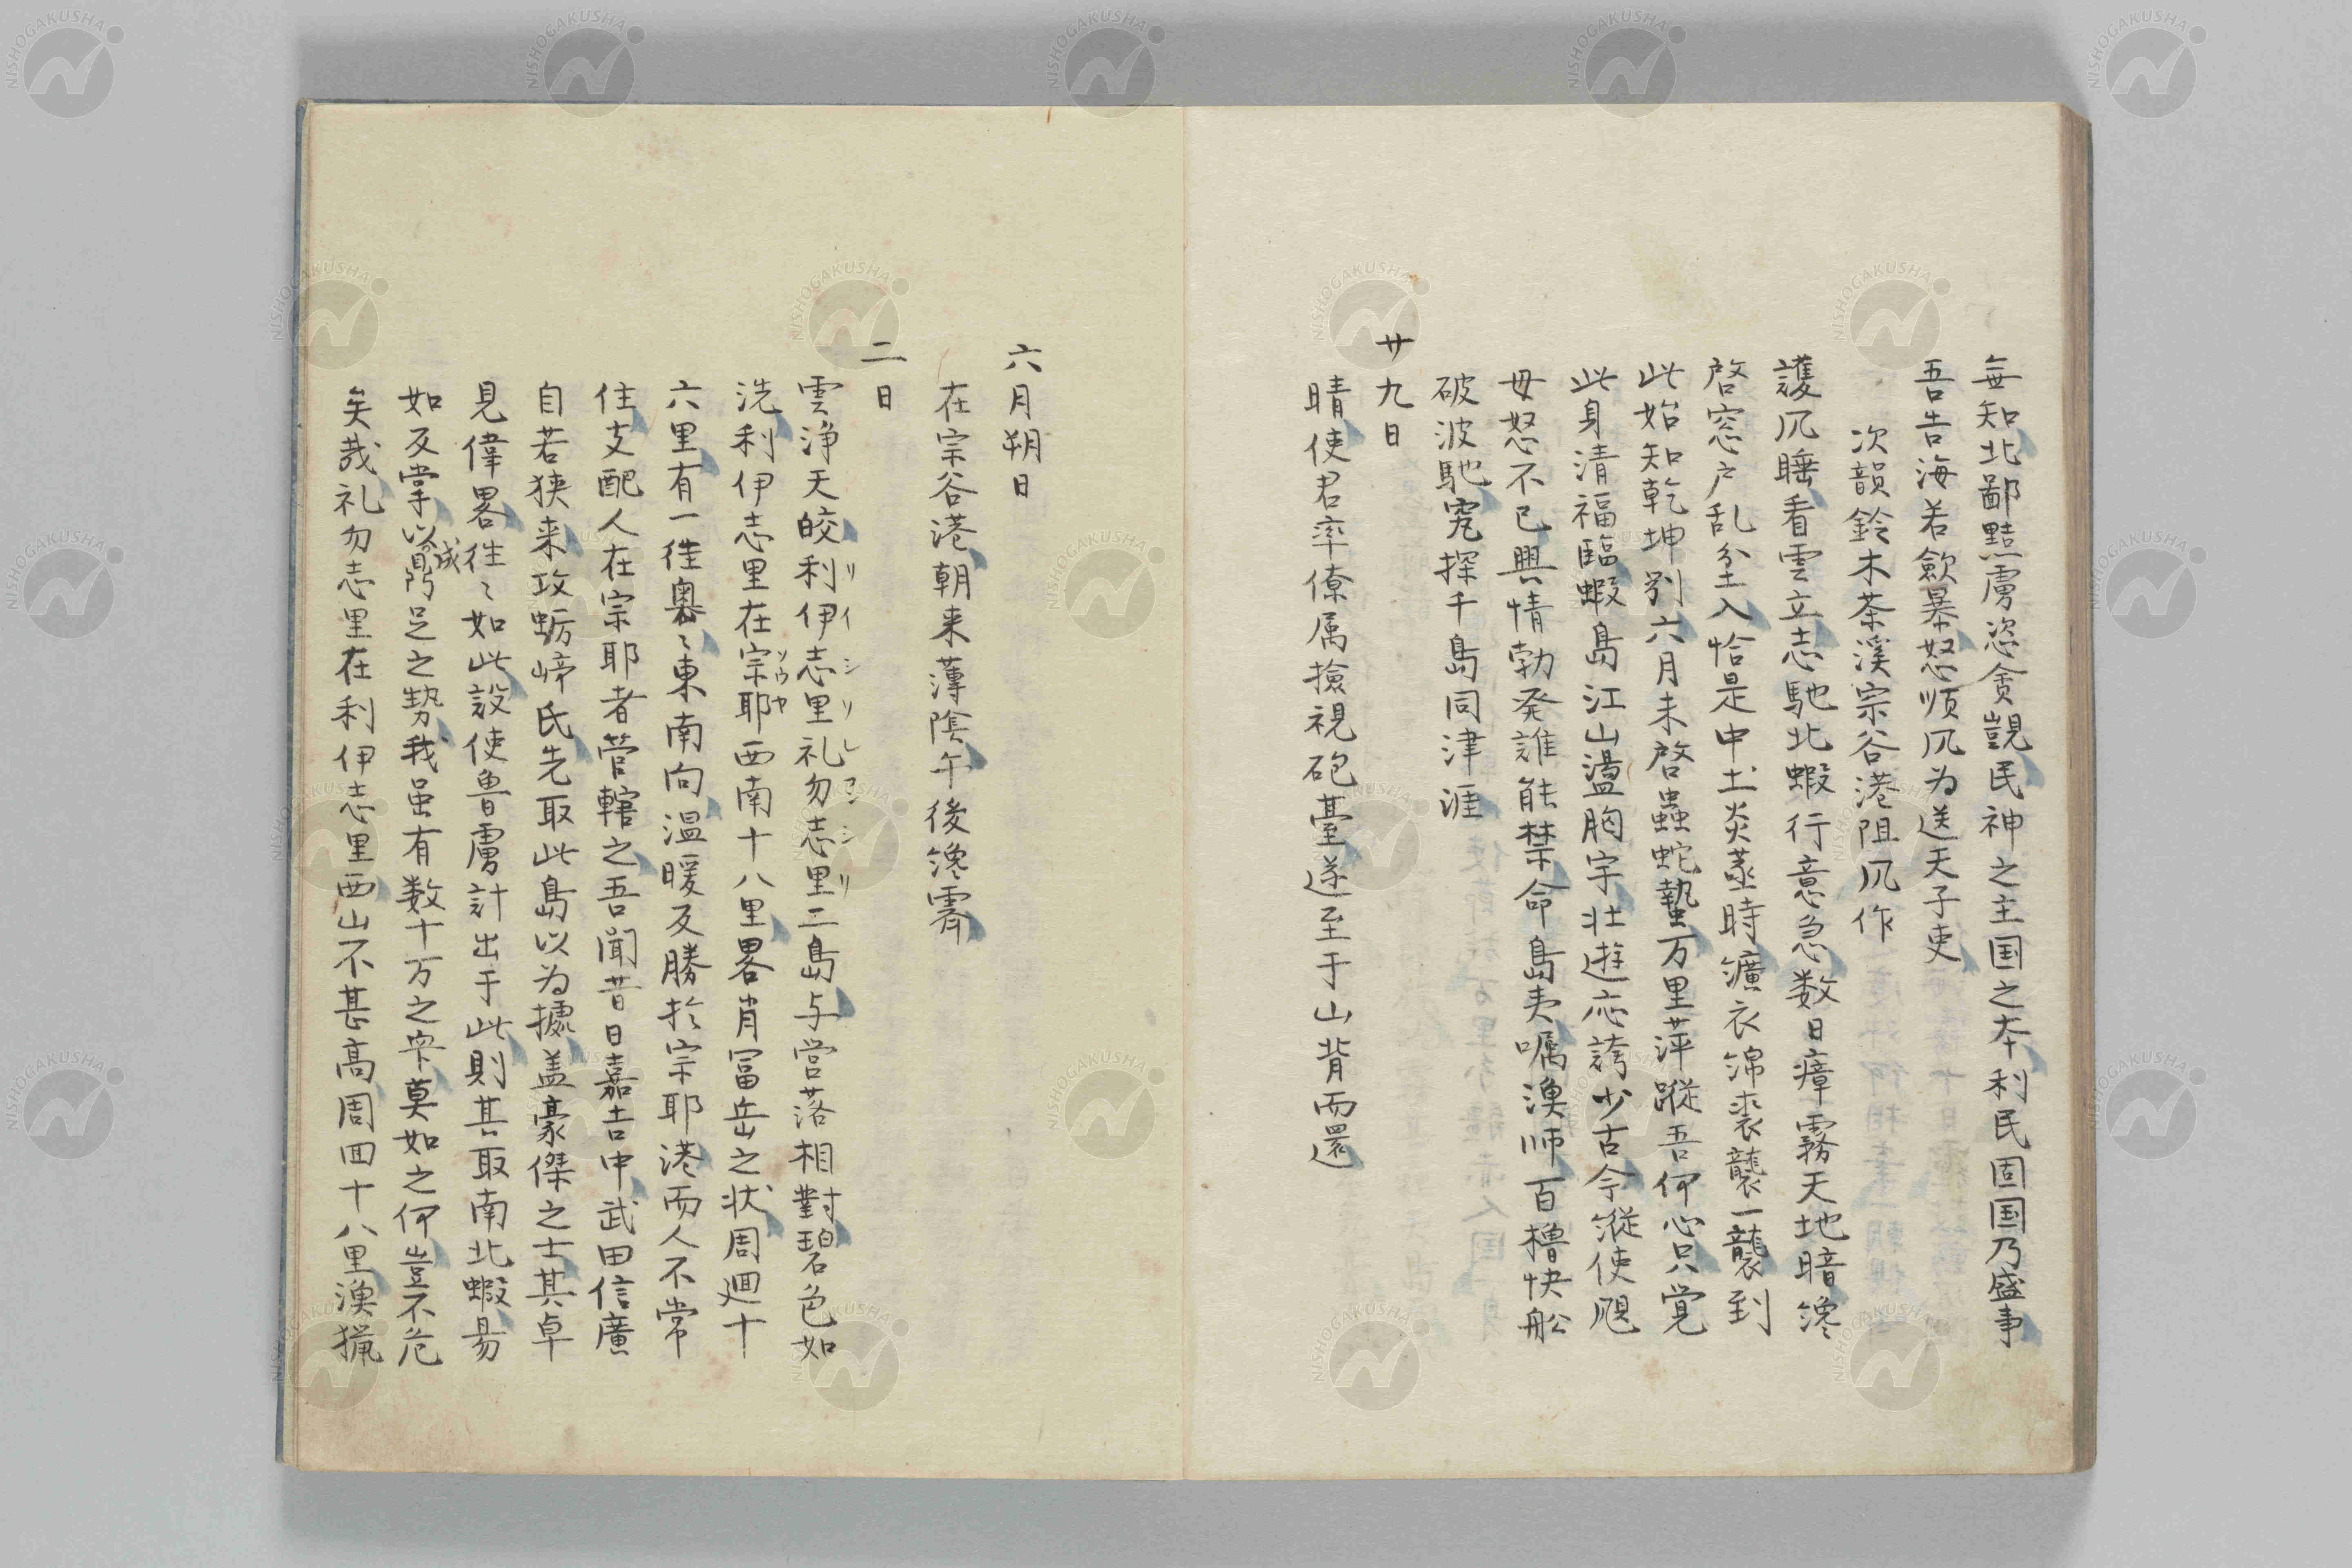 無知北鄙黠虜恣貪覬民神之主国之本利民固国乃盛事
吾告海若歛暴怒順凨为送天子吏
次韻鈴木茶溪宗谷港阻凨作
護凨睡看雲立志馳北蝦行意急数日瘴霧天地暗纔
啓窓戸乱坌入恰是中土炎蒸時纊衣綿裘襲一襲到
此始知乾坤別六月未啓蟲蛇蟄万里萍蹤吾何心只覚
此身清福臨蝦島江山盪胸宇壮遊応誇少古今縦使颶
母怒不已興情勃発誰能禁命島夷嘱漁师百櫓快舩
破波馳究探千島同津涯
廿九日
晴使君率僚属撿視砲臺遂至于山背而還
六月朔日
在宗谷港朝来薄陰午後纔霽
二日
雲浄天皎利伊志里礼勿志里二島与営落相對碧色如
リイシリレフンシリ
洗利伊志里在宗耶西南十八里畧肖冨岳之状周廻十
ソウヤ
六里有一徃奥〻東南向温暖反勝於宗耶港而人不常
住支配人在宗耶者菅轄之吾聞昔日嘉吉中武田信廣
自若狭来攻蛎﨑氏先取此島以为據盖豪傑之士其卓
見偉畧徃〻如此設使魯虜計出于此則其取南北蝦易
如反掌以成足之勢我虽有数十万之牢莫如之何豈不危
矣哉礼勿志里在利伊志里西山不甚高周回十八里漁猟
NISHOGAKUSHA